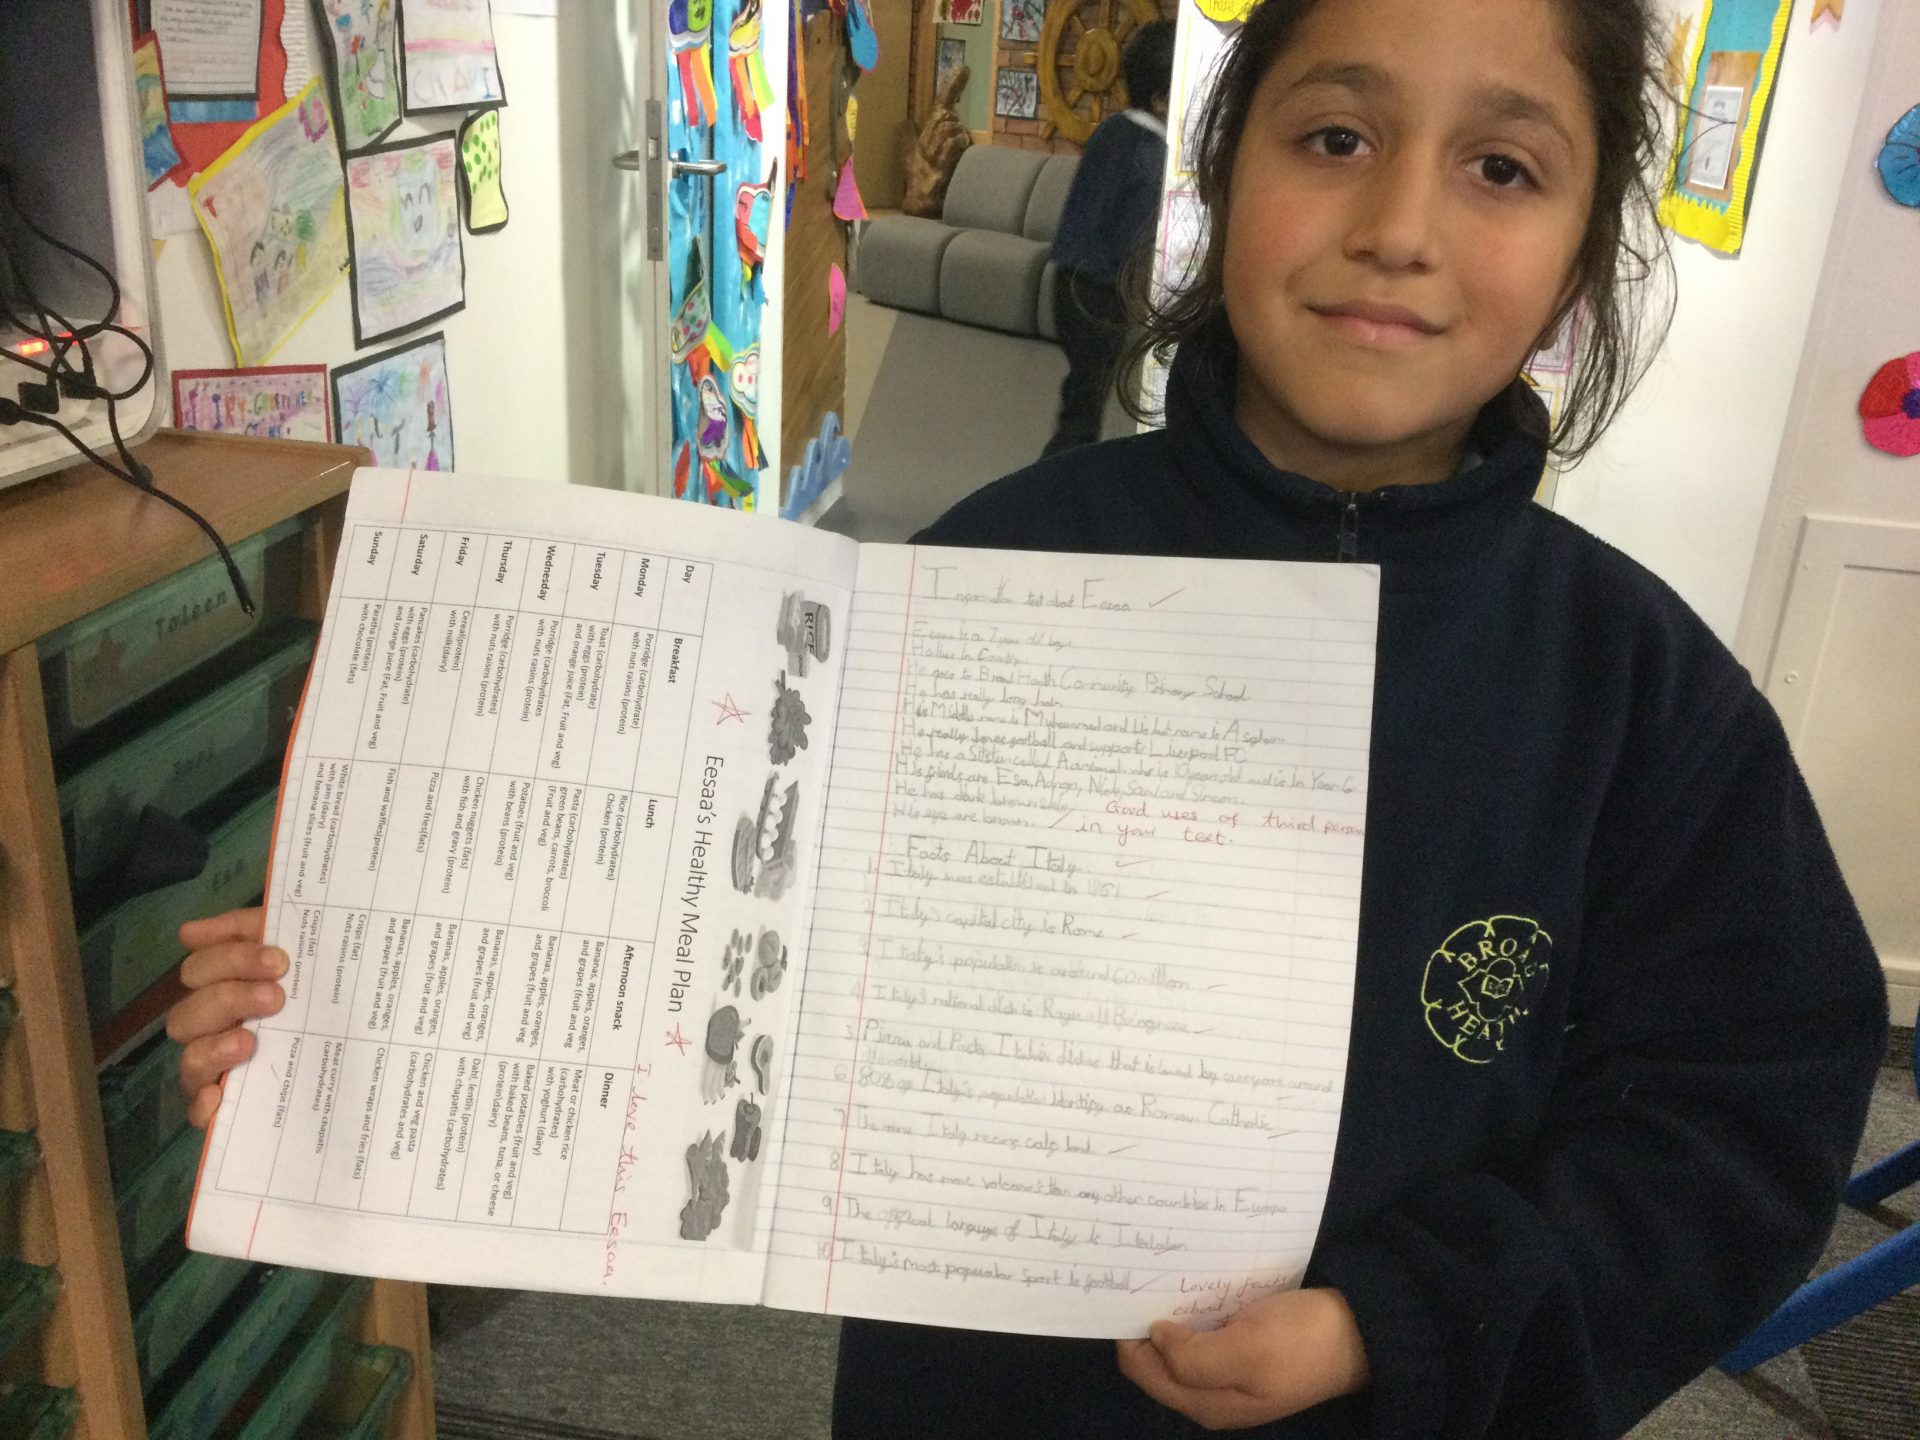 Information text about Eesaa
Eesaa is a 7 year old boy.
He lives in Coventry.
He goes to Broad Heath Community Primary School.
He has really long hair.
His Middle name is Muhammed and his last name is Asghar.
He really loves football and supports Liverpool FC.
He has a Sister called who is 10 years old and is in Year 6.
His friends are Esa, and
He has dark brown skin.
His eye are brown.
Good uses of third person
in your text.
Facts About Italy.
1. Italy was established in 1861
2. Italy's capital city is Rome
3. Italy's population is around 60 million
4. Italy's national dish is Ragu all Bolognese
5. Pizza and Pasta Italian dishes that is loved by everyone around
the world.
6. 80% of Italy's population identify as Roman Catholic
7. The name Italy means calf land
8. Italy has more volcano's than any other countries in Europe
9. The official language of Italy is Italian
10. Italy's most popular sport is football
Lovely facts
about
Eesaa's Healthy Meal Plan
I love this Eesaa.
RICE
Day Breakfast Lunch Afternoon snack Dinner
Monday
Porridge (carbohydrate)
with nuts raisins (protein)
Rice (carbohydrates)
Chicken (protein)
Bananas, apples, oranges,
and grapes (fruit and veg
Meat or chicken rice
(carbohydrates)
with yoghurt (dairy)
Tuesday
Toast (carbohydrate)
with eggs (protein)
and orange juice (Fat, Fruit and veg)
Pasta (carbohydrates)
green beans, carrots, broccoli
(Fruit and veg)
Bananas, apples, oranges,
and grapes (fruit and veg
Baked potatoes (fruit and veg)
with baked beans, tuna, or cheese
(protein\dairy)
Wednesday
Porridge (carbohydrates
with nuts raisins (protein)
Potatoes (fruit and veg)
with beans (protein)
Bananas, apples, oranges,
and grapes (fruit and veg
Dahl, lentils (protein)
with chapatis (carbohydrates)
Thursday
Porridge (carbohydrates)
with nuts raisins (protein)
Chicken nuggets (fats)
with fish and gravy (protein)
Bananas, apples, oranges,
and grapes (fruit and veg)
Chicken and veg pasta
(carbohydrates and veg)
Friday
Cereal(protein)
with milk(dairy)
Pizza and fries(fats)
Bananas, apples, oranges,
and grapes (fruit and veg)
Chicken wraps and fries (fats)
Saturday
Pancakes (carbohydrate)
with eggs (protein)
and orange juice (Fat, Fruit and veg)
Fish and waffles(protein)
Crisps (fat)
Nuts raisins (protein)
Meat curry with chapatis
(carbohydrates)
Sunday
Paratha (protein)
with chocolate (fats)
White bread (carbohydrates)
with jam (dairy)
and banana slices (fruit and veg)
Crisps (fat)
Nuts raisins (protein)
Pizza and chips (fats)
BROAD
HEATH
CHAVI
Taleen